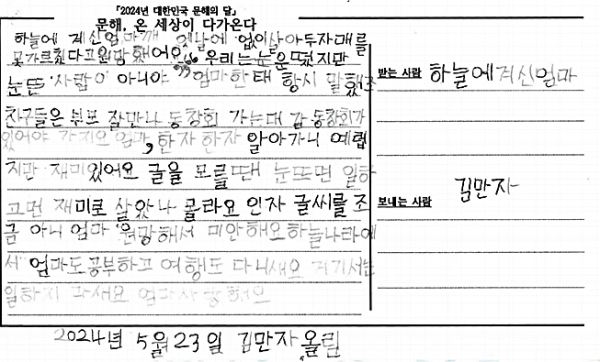 『2024년 대한민국 문해의 달』
문해, 온 세상이 다가온다
하늘에 계신엄마께 옛날에 없이살아두자매를
못가르쳤다고원망했어요 우리는눈은떴지만
눈뜬 사람이 아니야 엄마한태 항시 말했조
친구들은 부프 잘만나 동창회 가는대 감 동창회가
있어야 가지요 엄마, 한자 한자 알아가니 예렵
지만 재미있어요 글을 모를땐 눈뜨면 일하
고먼 재미로 살았나 몰라요 인자 글씨를 조
금 아니 엄마 원망해서 미안해요 하늘나라에
서 엄마도공부하고 여행도 다니새요 거기서는
일하지 마새요 엄마사랑해요
받는 사람 하늘에계신엄마
보내는 사람 김만자
2024년 5월23일 김만자 올림